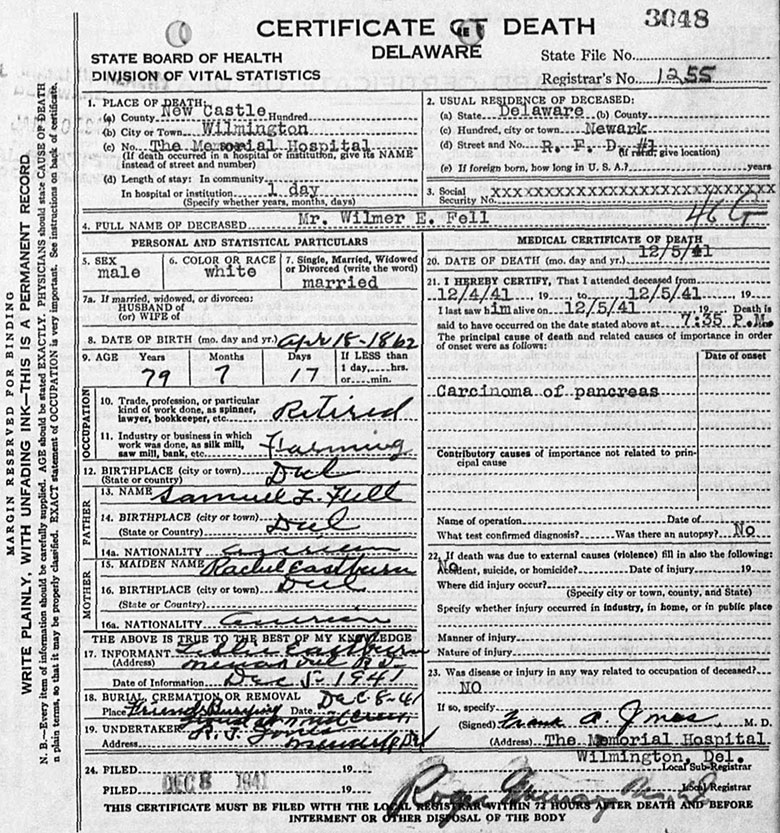 3048
CERTIFICATE OF DEATH
DELAWARE
STATE BOARD OF HEALTH
DIVISION OF VITAL STATISTICS
State File No.
Registrar's No. 1255
MARGIN RESERVED FOR BINDING
WRITE PLAINLY, WITH UNFADING INK—THIS IS A PERMANENT RECORD
N. B.—Every item of information should be carefully supplied. AGE should be stated EXACTLY. PHYSICIANS should state CAUSE OF DEATH
n plain terms, so that it may be properly classified. EXACT statement of OCCUPATION is very important. See instructions on back of certificate.
1. PLACE OF DEATH:
(a) County New Castle Hundred
(b) City or Town Wilmington
(c) No. The Memorial Hospital
(If death occurred in a hospital or institution, give its NAME
instead of street and number)
(d) Length of stay: In community
In hospital or institution 1 day
(Specify whether years, months, days)
2. USUAL RESIDENCE OF DECEASED:
(a) State Delaware (b) County
(c) Hundred, city or town Newark
(d) Street and No. R. F. D. #1
(If rural give location)
(e) If foreign born, how long in U. S. A.? years
3. Social
Security No. XXXXXXXXXXXXXXXXXXXXXXXXXXXX
46 G
4. FULL NAME OF DECEASED Mr. Wilmer E. Fell
PERSONAL AND STATISTICAL PARTICULARS
5. SEX
male
6. COLOR OR RACE
white
7. Single, Married, Widowed
or Divorced (write the word)
married
7a. If married, widowed, or divorced:
HUSBAND of
(or) WIFE of
8. DATE OF BIRTH (mo. day and yr.) Apr 18-1862
9. AGE Years Months Days If LESS than
1 day, hrs.
or min.
79 7 17
OCCUPATION
10. Trade, profession, or particular
kind of work done, as spinner,
lawyer, bookkeeper, etc. Retired
11. Industry or business in which
work was done, as silk mill,
saw mill, bank, etc. Farming
12. BIRTHPLACE (city or town) Del
(State or country)
FATHER
13. NAME Samuel L. Fell
14. BIRTHPLACE (city or town) Del
(State or Country)
14a. NATIONALITY American
MOTHER
15. MAIDEN NAME Rachel Eastburn
16. BIRTHPLACE (city or town) Del
(State or Country)
16a. NATIONALITY American
THE ABOVE IS TRUE TO THE BEST OF MY KNOWLEDGE
17. INFORMANT Leslie Eastburn
(Address) Newark Del R.D.
Date of Information Dec 5-1941
18. BURIAL, CREMATION OR REMOVAL
Place Friends Burying Date Dec-8-41
19. UNDERTAKER R. T. Jones
Address Newark Del
MEDICAL CERTIFICATE OF DEATH
20. DATE OF DEATH (mo. day and yr.) 12/5/41
21. I HEREBY CERTIFY, That I attended deceased from
12/4/41, 19 to 12/5/41, 19
I last saw him alive on 12/5/41, 19 Death is
said to have occurred on the date stated above at 7:35 P.M.
The principal cause of death and related causes of importance in order
of onset were as follows:
Date of onset
Carcinoma of pancreas
Contributory causes of importance not related to prin-
cipal cause
Name of operation Date of
What test confirmed diagnosis? Was there an autopsy? No
22. If death was due to external causes (violence) fill in also the following:
No
Accident, suicide, or homicide? Date of injury 19
Where did injury occur?
(Specify city or town, county, and State)
Specify whether injury occurred in industry, in home, or in public place
Manner of injury
Nature of injury
23. Was disease or injury in any way related to occupation of deceased?
NO
If so, specify
(Signed) Frank A. Jones M. D.
(Address) The Memorial Hospital
Wilmington, Del.
24. FILED 19 Local Sub-Registrar
FILED DEC 8 1941 19 Local Registrar
THIS CERTIFICATE MUST BE FILED WITH THE LOCAL REGISTRAR WITHIN 72 HOURS AFTER DEATH AND BEFORE
INTERMENT OR OTHER DISPOSAL OF THE BODY